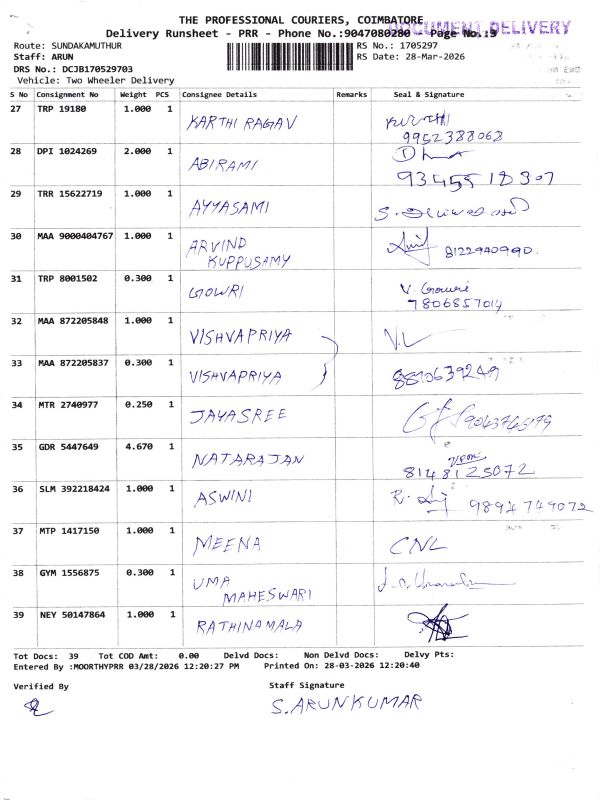 THE PROFESSIONAL COURIERS, COIMBATORE
DOCUMENT DELIVERY
Delivery Runsheet - PRR - Phone No.:9047080280 - Page No.:3
Route: SUNDAKAMUTHUR
RS No.: 1705297
Staff: ARUN
RS Date: 28-Mar-2026
DRS No.: DCJB170529703
Vehicle: Two Wheeler Delivery
S No Consignment No Weight PCS Consignee Details Remarks Seal & Signature
27 TRP 19180 1.000 1 KARTHI RAGAV
9952388068
28 DPI 1024269 2.000 1 ABIRAMI
9345518307
29 TRR 15622719 1.000 1 AYYASAMI
30 MAA 9000404767 1.000 1 ARVIND KUPPUSAMY
8122940990.
31 TRP 8001502 0.300 1 GOWRI V. Gowri
7806857014
32 MAA 872205848 1.000 1 VISHVAPRIYA V.L
33 MAA 872205837 0.300 1 VISHVAPRIYA 8870639249
34 MTR 2740977 0.250 1 JAYASREE
35 GDR 5447649 4.670 1 NATARAJAN
8148125072
36 SLM 392218424 1.000 1 ASWINI 9894749072
37 MTP 1417150 1.000 1 MEENA CNL
38 GYM 1556875 0.300 1 UMA MAHESWARI
39 NEY 50147864 1.000 1 RATHINAMALA
Tot Docs: 39 Tot COD Amt: 0.00 Delvd Docs: Non Delvd Docs: Delvy Pts:
Entered By :MOORTHYPRR 03/28/2026 12:20:27 PM Printed On: 28-03-2026 12:20:40
Verified By Staff Signature
S. ARUNKUMAR